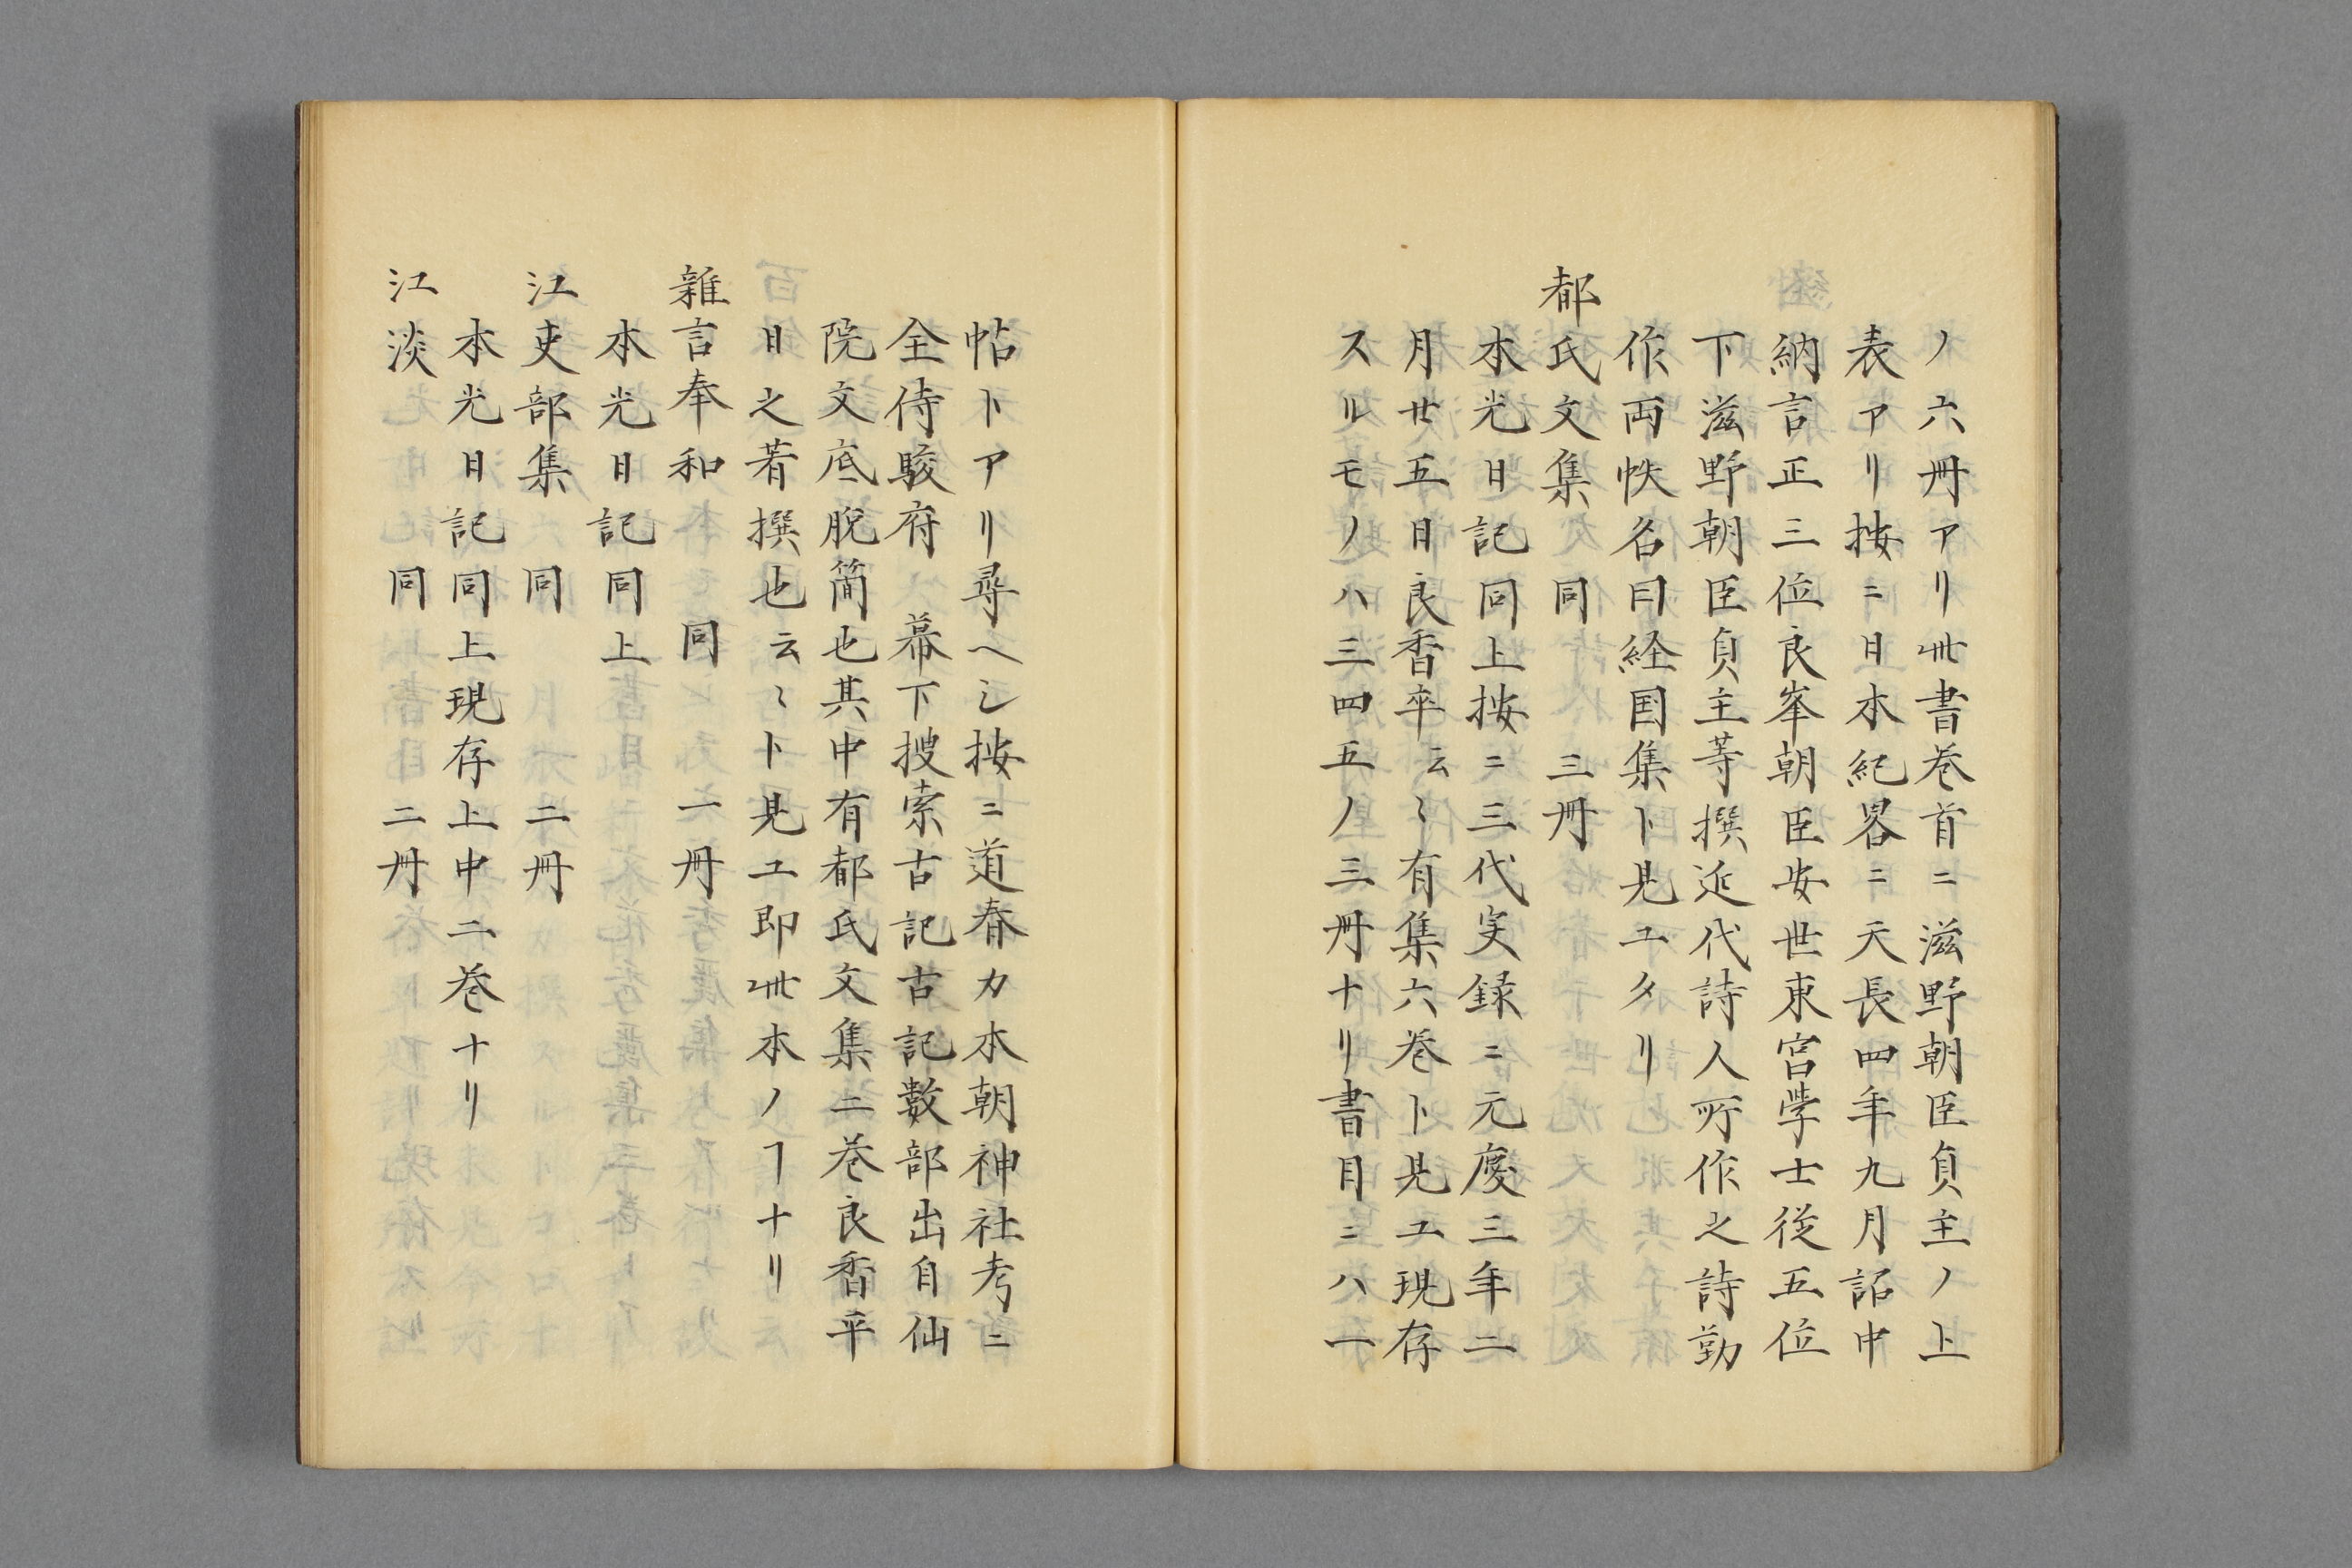 ノ六冊アリ此書巻首ニ滋野朝臣貞主ノ上
表アリ按ニ日本紀畧ニ天長四年九月詔中
納言正三位良峯朝臣安世東宮学士従五位
下滋野朝臣貞主等撰近代詩人所作之詩勒
作両帙名曰経国集ト見エタリ
都氏文集 同 三冊
本光日記同上按ニ三代実録ニ元慶三年二
月廿五日良香卒云〻有集六巻ト見エ現存
スルモノハ三四五ノ三冊ナリ書目ニハ一
帖トアリ尋ヘシ按ニ道春カ本朝神社考ニ
全侍駿府 幕下捜索古記古記数部出自仙
院文底脱簡也其中有都氏文集二巻良香平
日之著撰也云〻ト見エ即此本ノヿナリ
雑言奉和 同 一冊
本光日記同上
江吏部集 同 二冊
本光日記同上現存上中二巻ナリ
江淡 同 二冊